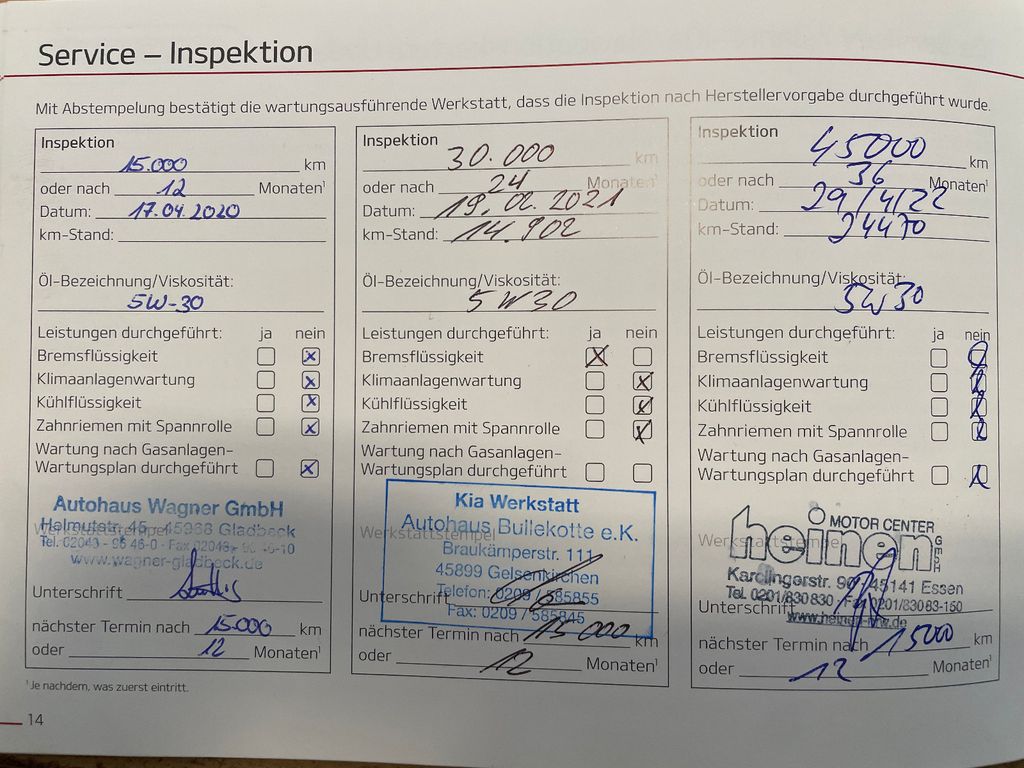 Service – Inspektion
Mit Abstempelung bestätigt die wartungsausführende Werkstatt, dass die Inspektion nach Herstellervorgabe durchgeführt wurde.
Inspektion
15.000 km
oder nach 12 Monaten¹
Datum: 17.04.2020
km-Stand:
Öl-Bezeichnung/Viskosität:
5W-30
Leistungen durchgeführt: ja nein
Bremsflüssigkeit x
Klimaanlagenwartung x
Kühlflüssigkeit x
Zahnriemen mit Spannrolle x
Wartung nach Gasanlagen-
Wartungsplan durchgeführt x
Autohaus Wagner GmbH
Helmutstr. 45 45968 Gladbeck
Werkstattstempel
Tel. 02043 - 96 46-0 · Fax 02043 - 96 46-10
www.wagner-gladbeck.de
Unterschrift
nächster Termin nach 15.000 km
oder 12 Monaten¹
Inspektion
30.000 km
oder nach 24 Monaten¹
Datum: 19.02.2021
km-Stand: 14.902
Öl-Bezeichnung/Viskosität:
5W30
Leistungen durchgeführt: ja nein
Bremsflüssigkeit x
Klimaanlagenwartung x
Kühlflüssigkeit x
Zahnriemen mit Spannrolle x
Wartung nach Gasanlagen-
Wartungsplan durchgeführt
Kia Werkstatt
Autohaus Bullekotte e.K.
Werkstattstempel
Braukämperstr. 111
45899 Gelsenkirchen
Telefon: 0209 / 585855
Unterschrift
Fax: 0209 / 585845
nächster Termin nach 15 000 km
oder 12 Monaten¹
Inspektion
45000 km
oder nach 36 Monaten¹
Datum: 29/4/22
km-Stand: 24470
Öl-Bezeichnung/Viskosität:
5W30
Leistungen durchgeführt: ja nein
Bremsflüssigkeit
Klimaanlagenwartung
Kühlflüssigkeit
Zahnriemen mit Spannrolle
Wartung nach Gasanlagen-
Wartungsplan durchgeführt
MOTOR CENTER
heinen GmbH
Werkstattstempel
Karolingerstr. 90 45141 Essen
Tel. 0201/830 830 · Fax 0201/830 83-150
Unterschrift
www.heinen-mw.de
nächster Termin nach 15000 km
oder 12 Monaten¹
¹Je nachdem, was zuerst eintritt.
14